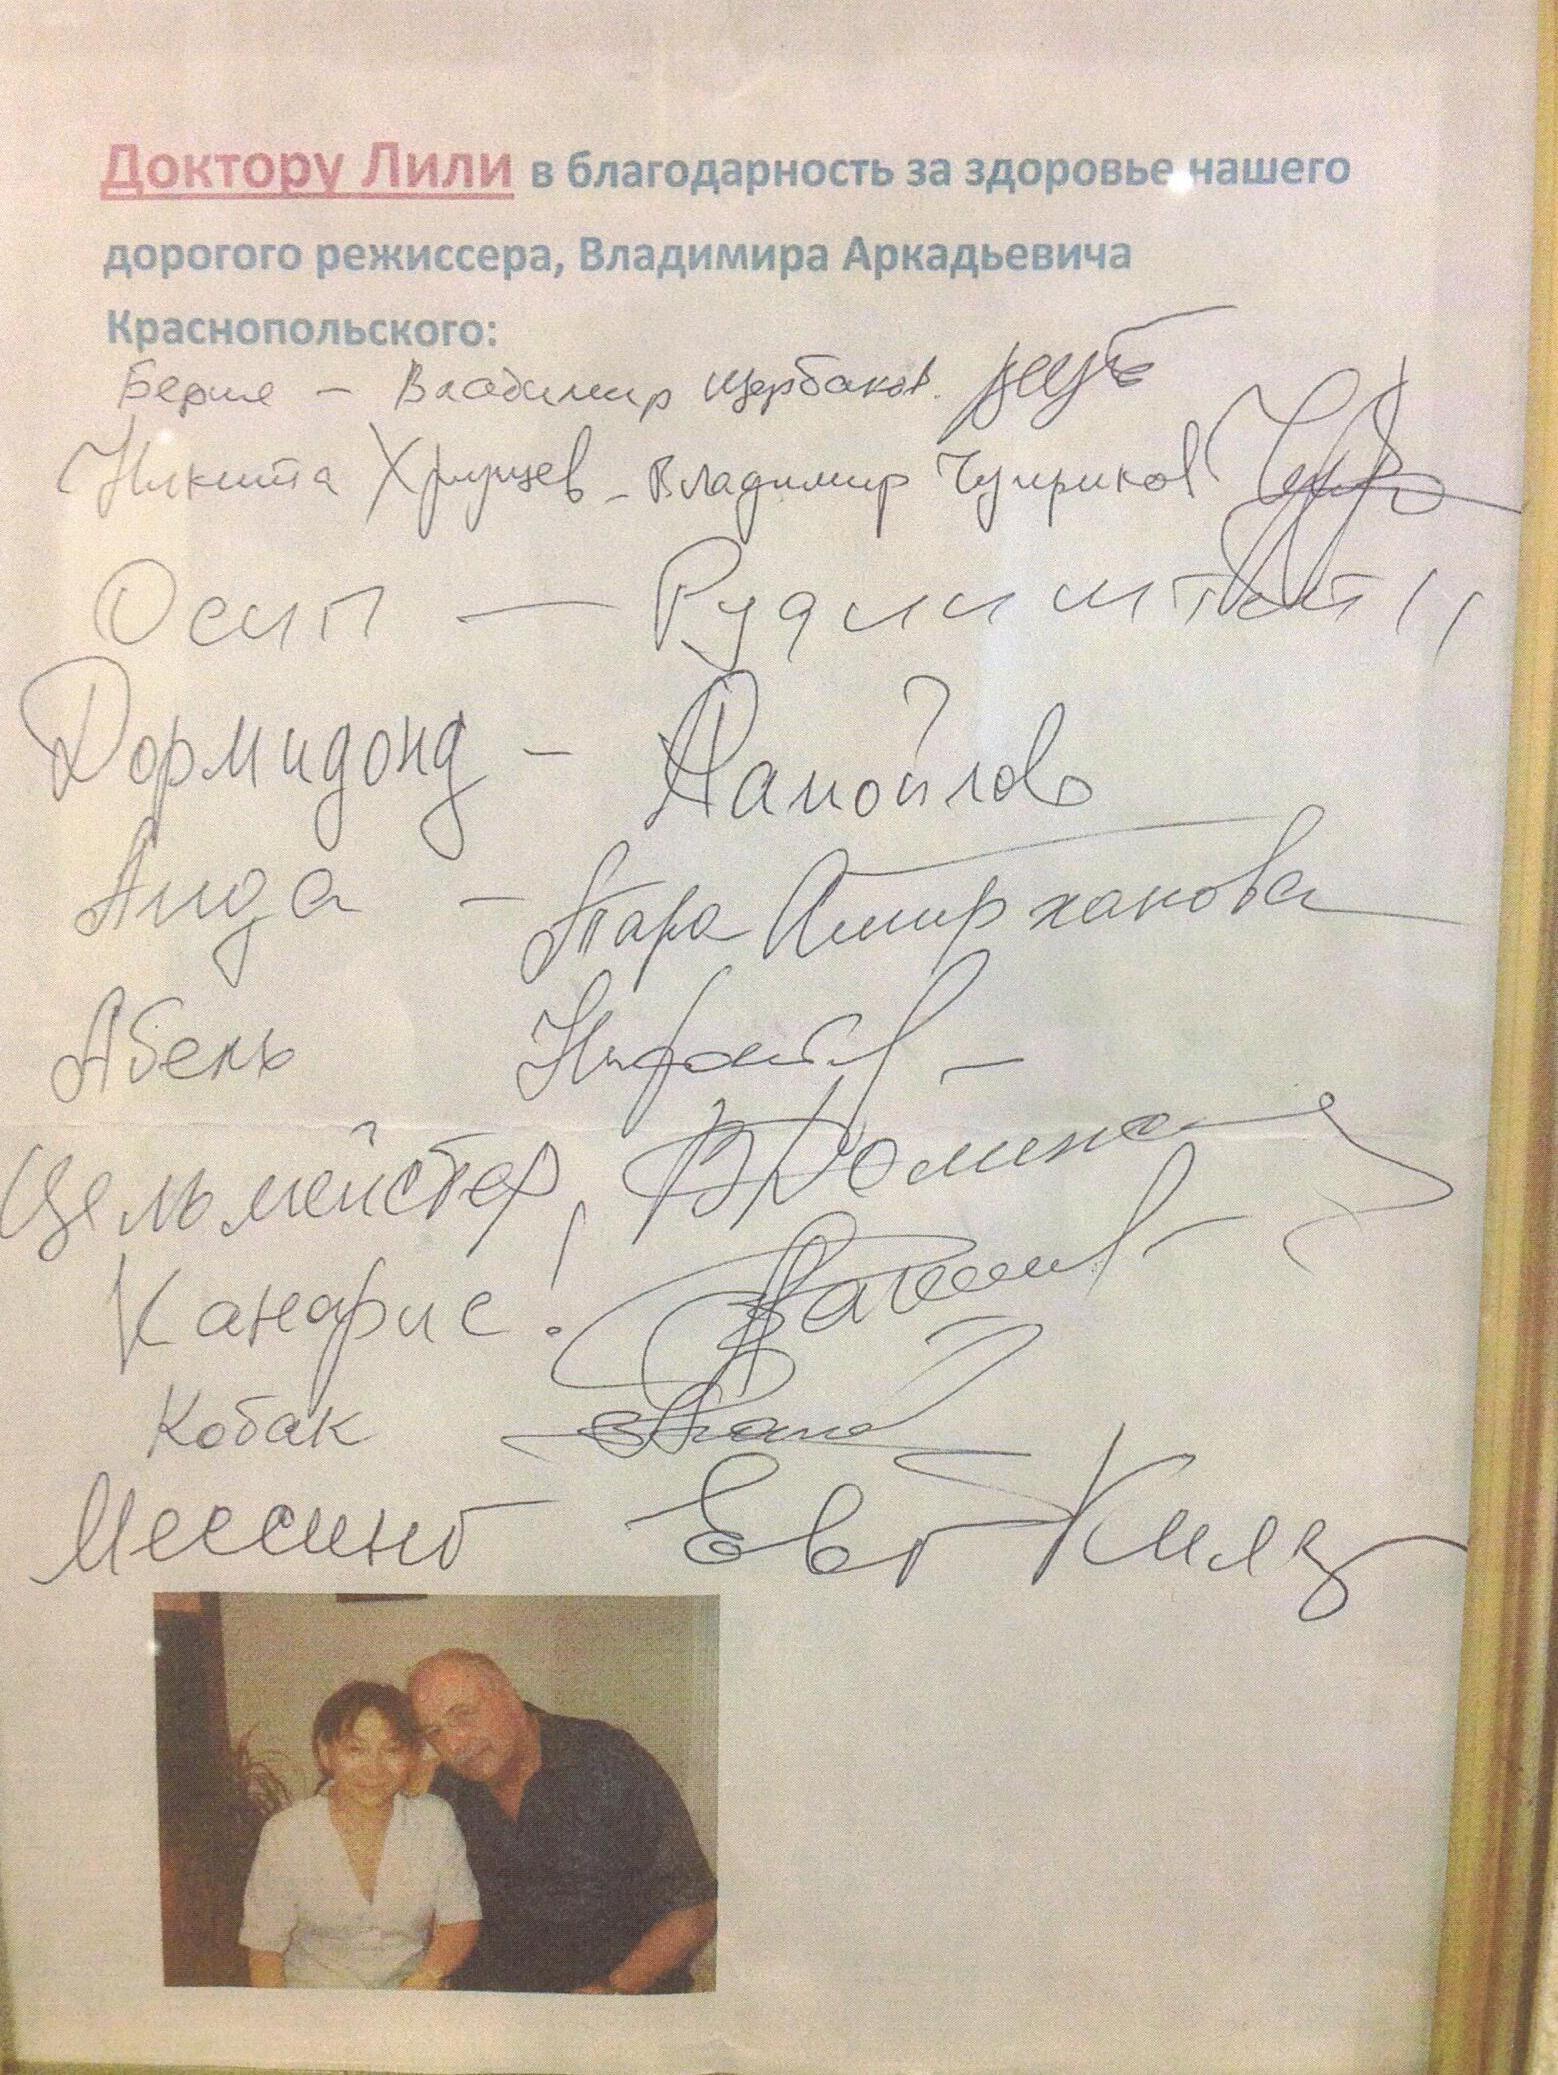 Доктору Лили в благодарность за здоровье нашего
дорогого режиссера, Владимира Аркадьевича
Краснопольского:
Берия – Владимир Щербаков.
Никита Хрущев – Владимир Чуприков
Осип —
Дормидонд – Самойлов
Аида – Тара Амирханова
Абель
Цельмейстер
Канарис!
Кобак
Мессинг Евг Князев